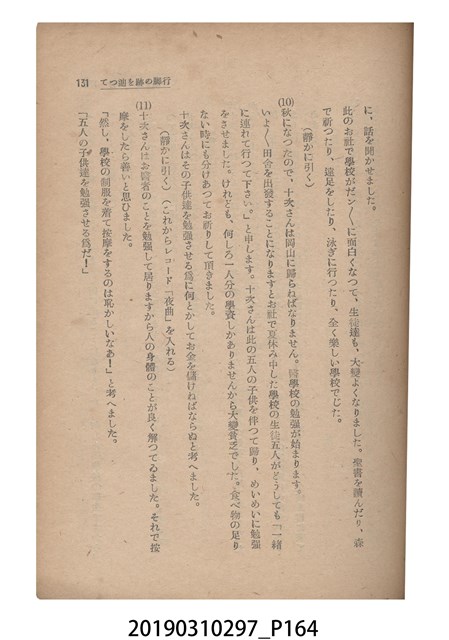 行脚の跡を逈つて　131
に、話を聞かせました。
此のお社で學校がだン〳〵に面白くなつて、生徒達も、大變よくなりました。聖書を讀んだり、森
で祈つたり、遠足をしたり、泳ぎに行つたり、全く樂しい學校でした。
（靜かに引く）
(10)秋になつたので、十次さんは岡山に歸らねばなりません。醫學校の勉强が始まります。
いよ〳〵田舍を出發することになりますとお社で夏休み中した學校の生徒五人がどうしても「一緖
に連れて行つて下さい。」と申します。十次さんは此の五人の子供を伴つて歸り、めいめいに勉强
をさせました。けれども、何しろ一人分の學資しかありませんから大變貧乏でした。食べ物の足り
ない時にも分けあつてお祈りして頂きました。
十次さんはその子供達を勉强させる爲に何とかしてお金を儲けねばならぬと考へました。
（靜かに引く）（これからレコード「夜曲」を入れる）
(11)十次さんはお醫者のことを勉强して居りますから人の身體のことが良く解つてゐました。それで按
摩をしたら善いと思ひました。
「然し、學校の制服を着て按摩をするのは恥かしいなあ！」と考へました。
「五人の子供達を勉强させる爲だ！」
20190310297_P164